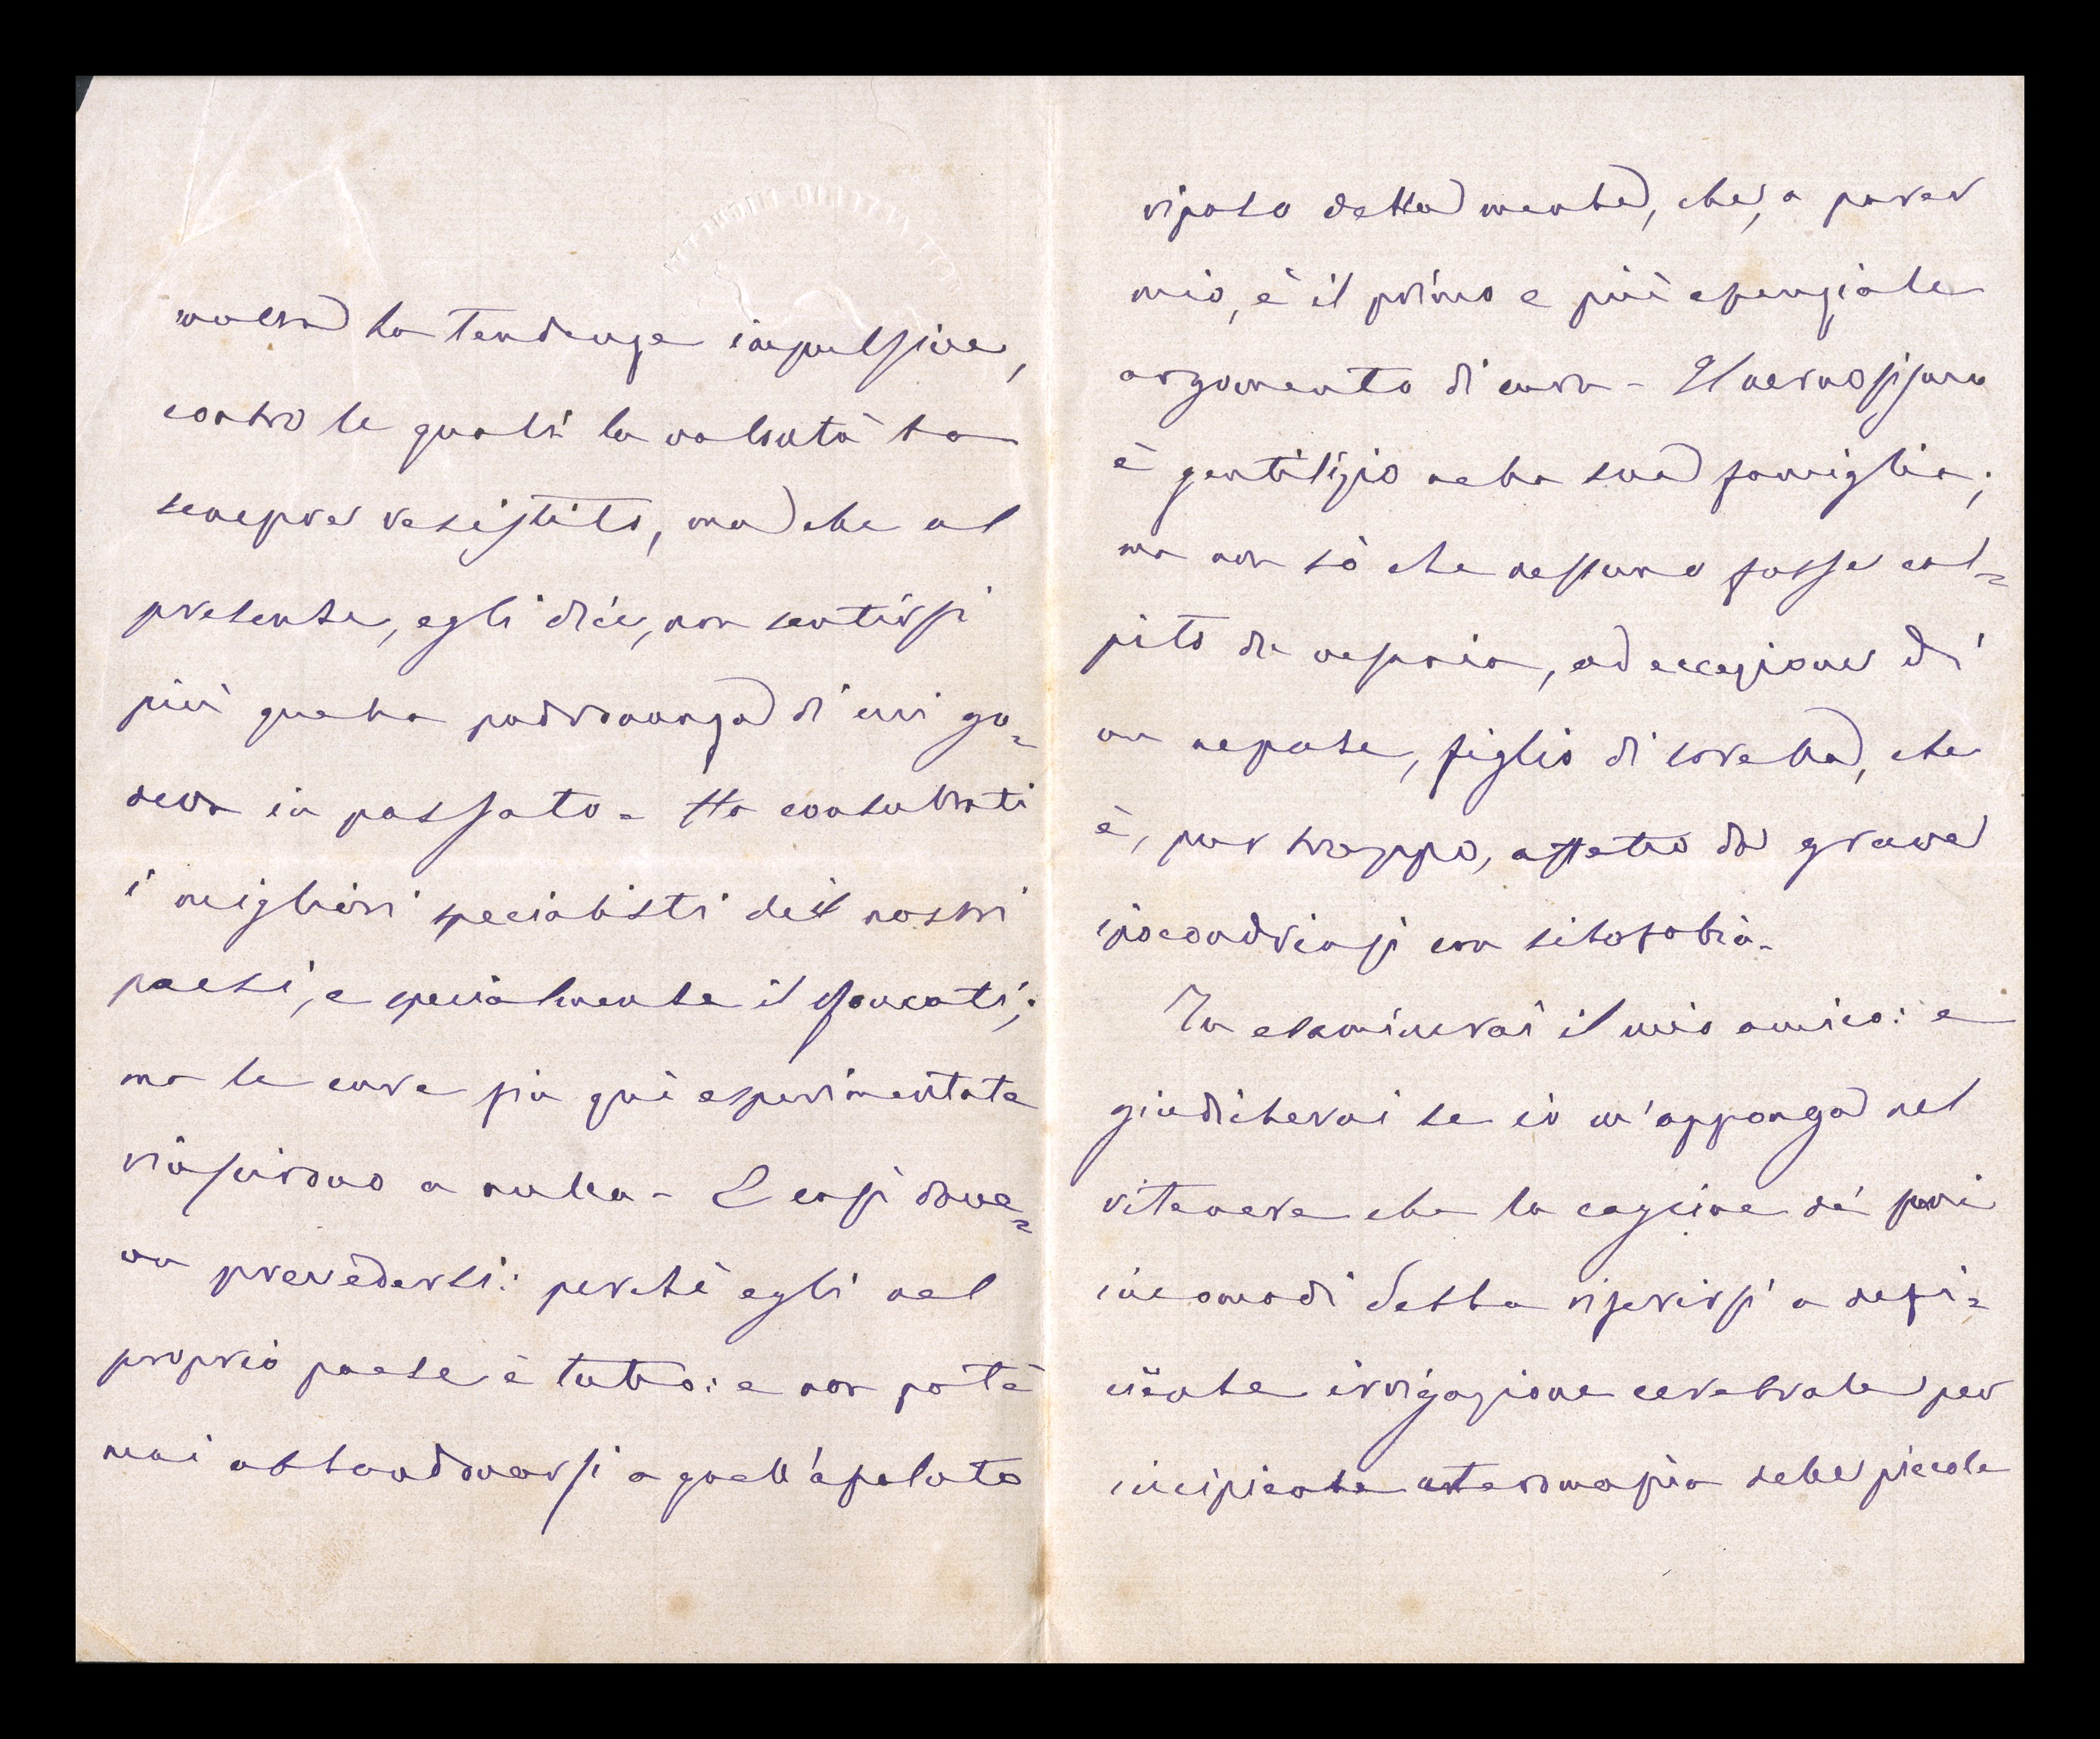 ha tendenze impulsive,
contro le quali la volontà ha
sempre resistito, ma che al
presente, egli dice, non sentirsi
più quella padronanza di cui go=
deva in passato - Ha consultati
i migliori specialisti dei nostri
paesi, e specialmente il
ma le cure fin quì esperimentate
riuscirono a nulla - E così dove=
va prevedersi: perchè egli nel
proprio paese è tutto: e non potè
mai abbandonarsi a quell'assoluto
riposo della mente, che, a parer
mio, è il primo e più essenziale
argomento di cura - Il nervosismo
è gentilizio nella sua famiglia;
ma non sò che nessuno fosse col=
pito da, ad eccezione di
un nepote, figlio di sorella, che
è, pur troppo, affetto da grave
ipocondriasi con sitofobia -
Tu esaminerai il mio amico: e
giudicherai se io m'apponga nel
ritenere che la cagione de' suoi
incomodi debba riferirsi a defi=
ciente irrigazione cerebrale per
incipiente ateromasia delle piccole